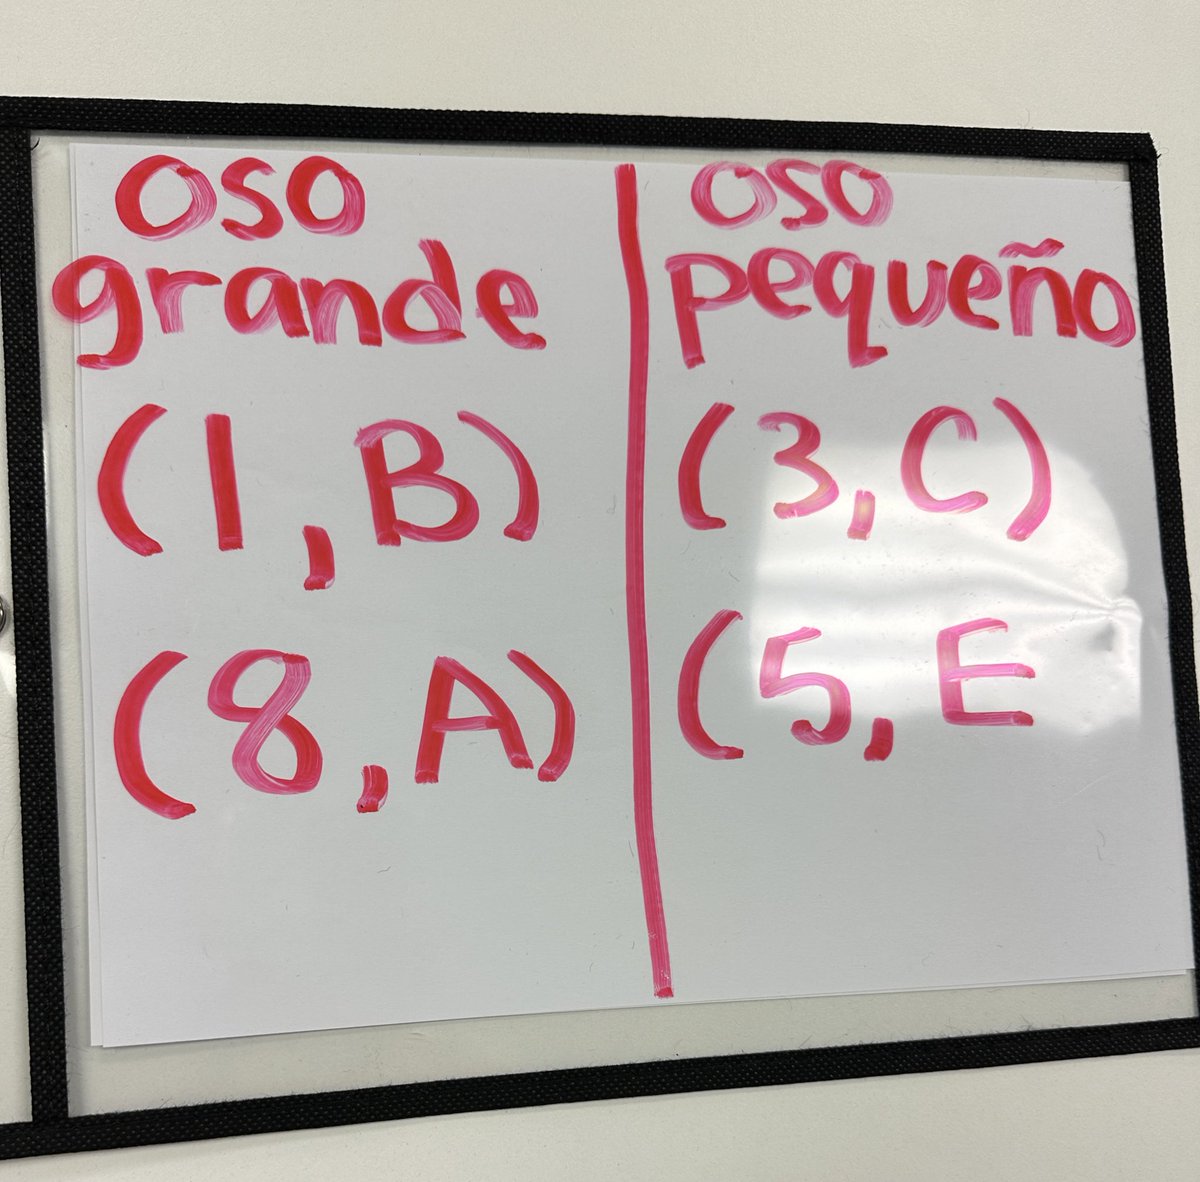 oso
grande
(1, B)
(8, A)
oso
pequeño
(3, C)
(5, E